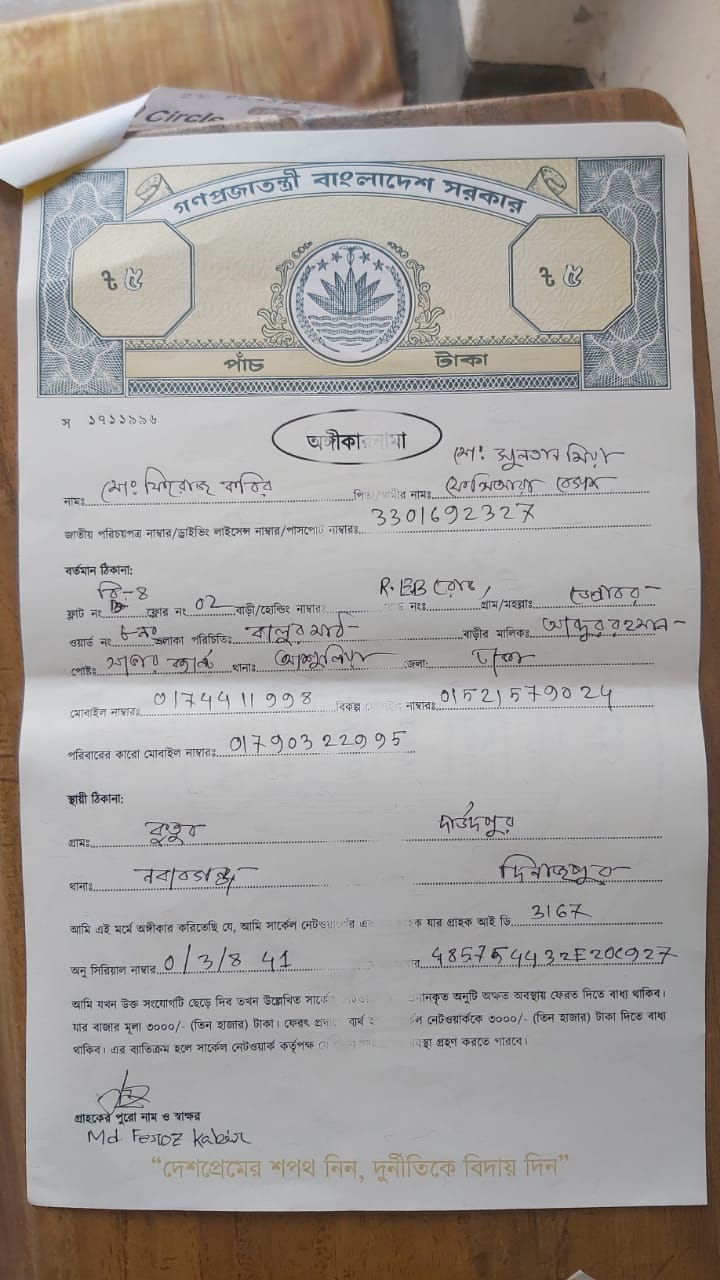 Circle
গণপ্রজাতন্ত্রী বাংলাদেশ সরকার
৳ ৫ ৳ ৫
পাঁচ টাকা
স ১৭১১৯৯৬
অঙ্গীকারনামা
মো: সুলতান মিয়া
নামঃ মো: ফিরোজ কবির পিতা/স্বামীর নামঃ বেগম
জাতীয় পরিচয়পত্র নাম্বার/ড্রাইভিং লাইসেন্স নাম্বার/পাসপোর্ট নাম্বারঃ 3301692327
বর্তমান ঠিকানা:
ফ্লাট নং বি-৪ ফ্লোর নং 02 বাড়ী/হোল্ডিং নাম্বারঃ রোড নংঃ R.EB রোড, গ্রাম/মহল্লাঃ
ওয়ার্ড নং এলাকা পরিচিতিঃ বালুর মাঠ বাড়ীর মালিকঃ আব্দুর রহমান
পোষ্টঃ থানাঃ আশুলিয়া জেলা: ঢাকা
মোবাইল নাম্বারঃ 01744911998 বিকল্প নাম্বারঃ 01521579024
পরিবারের কারো মোবাইল নাম্বারঃ 01790322995
স্থায়ী ঠিকানা:
গ্রামঃ কুতুব দাউদপুর
থানাঃ নবাবগঞ্জ দিনাজপুর
আমি এই মর্মে অঙ্গীকার করিতেছি যে, আমি সার্কেল নেটওয়ার্কের এক যার গ্রাহক আই ডি 3167
অনু সিরিয়াল নাম্বার 0/3/8 41 485754432E20C927
আমি যখন উক্ত সংযোগটি ছেড়ে দিব তখন উল্লেখিত সার্কেল অনুটি অক্ষত অবস্থায় ফেরত দিতে বাধ্য থাকিব।
যার বাজার মূল্য ৩০০০/- (তিন হাজার) টাকা। ফেরৎ ব্যর্থ নেটওয়ার্ককে ৩০০০/- (তিন হাজার) টাকা দিতে বাধ্য
থাকিব। এর ব্যতিক্রম হলে সার্কেল নেটওয়ার্ক কর্তৃপক্ষ গ্রহণ করতে পারবে।
গ্রাহকের পুরো নাম ও স্বাক্ষর
Md. Feroz Kabir
“দেশপ্রেমের শপথ নিন, দুর্নীতিকে বিদায় দিন”